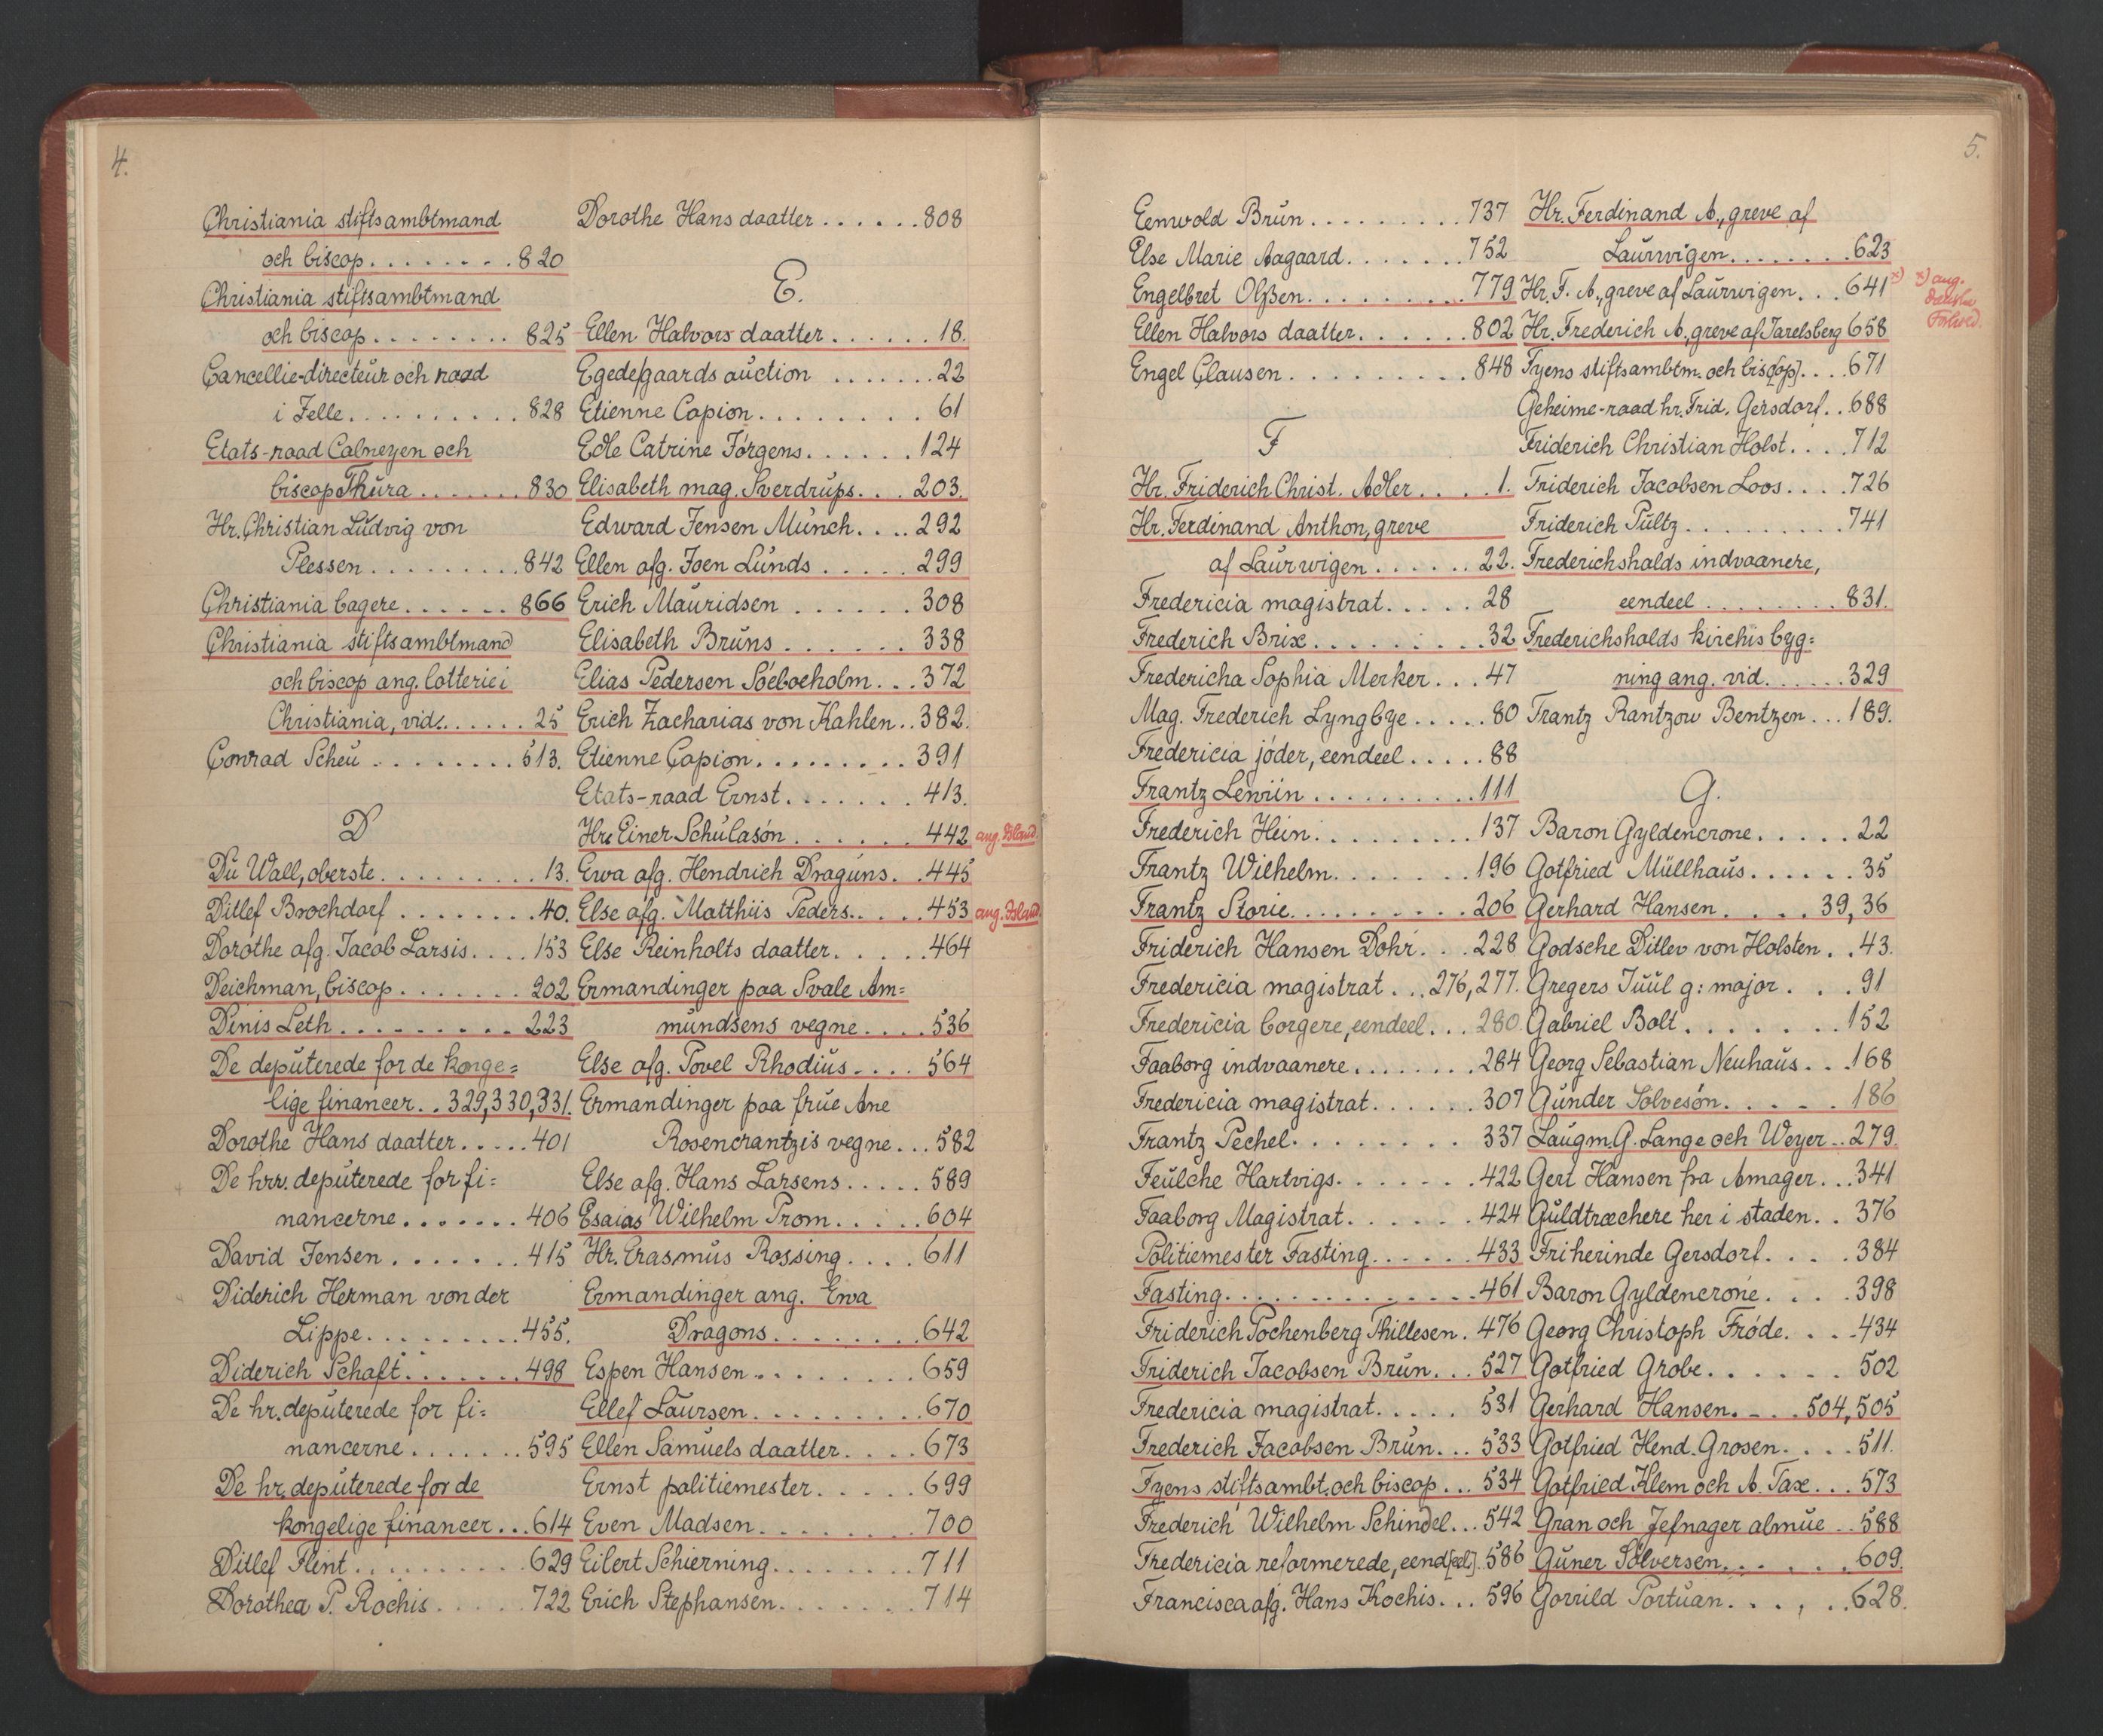 4.
Christiania stiftsambtmand
och biscop........820
Christiania stiftsambtmand
och biscop........825
Cancellie-directeur och raad
i Zelle..........828
Etats-raad Calneyen och
biscop Thura.......830
Hr. Christian Ludvig von
Plessen.........842
Christiania bagere......866
Christiania stiftsambtmand
och biscop ang. lotterie i
Christiania, vid:......25
Conrad Scheu........613.
D
Du Wall, oberste.........13.
Ditlef Brochdorf........40.
Dorothe afg. Jacob Larsis....153
Deichman, biscop.......202
Dinis Leth.........223
De deputerede for de konge=
lige financer..329,330,331.
Dorothe Hans daatter.....401
De hrr. deputerede for fi=
nancerne.......406
David Jensen.......415
Diderich Herman von der
Lippe.........455.
Diderich Schaft.......498
De hr. deputerede for fi=
nancerne.......595
De hr. deputerede for de
kongelige financer...614
Ditlef Flint..........629
Dorothea P. Rochis.....722
Dorothe Hans daatter......808
E.
Ellen Halvors daatter......18.
Egedesgaards auction.......22
Etienne Capion.........61
Edle Catrine Jörgens......124
Elisabeth mag. Sverdrups...203.
Edward Jensen Munch....292
Ellen afg. Joen Lunds.....299
Erich Mauridsen......308
Elisabeth Bruns......338
Elias Pedersen Söeboeholm...372
Erich Zacharias von Kahlen..382.
Etienne Capion.........391
Etats-raad Ernst.......413.
Hr. Einer Schulasón......442 ang. Island.
Ewa afg. Hendrich Draguns..445
Else afg. Matthiis Peders.....453 ang. Island.
Else Reinholts daatter......464
Ermandinger paa Svale Am=
mundsens vegne....536
Else afg. Povel Rhodius....564
Ermandinger paa frue Ane
Rosencrantzis vegne...582
Else afg. Hans Larsens.....589
Esaias Wilhelm Trom.....604
Hr. Erasmus Rossing....611
Ermandinger ang. Ewa
Dragons........642
Espen Hansen.........659
Ellef Laursen.........670
Ellen Samuels daatter....673
Ernst politiemester.....699
Even Madsen........700
Eilert Schierning........711
Erich Stephansen.......714
5.
Eenwold Brun.........737
Else Marie Aagaard.......752
Engelbret Olßen.........779
Ellen Halvors daatter......802
Engel Clausen.........848
F
Hr. Friderich Christ. Adler....1.
Hr. Ferdinand Anthon, greve
af Laurwigen......22.
Fredericia magistrat.....28
Frederich Brix.........32
Fredericha Sophia Merker...47
Mag. Frederich Lyngbye.....80
Fredericia jöder, eendeel.....88
Frantz Lewiin..........111
Frederich Hein.........137
Frantz Wilhelm.......196
Frantz Storie..........206
Friderich Hansen Dohr...228
Fredericia magistrat...276,277.
Fredericia borgere, eendeel...280
Faaborg indvaanere........284
Fredericia magistrat......307
Frantz Pechel........337
Feulche Hartvigs.......422
Faaborg Magistrat......424
Politiemester Fasting......433
Fasting.............461
Friderich Pochenberg Thillesen.476
Friderich Jacobsen Brun...527
Fredericia magistrat.....531
Frederich Jacobsen Brun...533
Fyens stiftsambt. och biscop...534
Frederich Wilhelm Schindel...542
Fredericia reformerede, eend[eel].586
Francisca afg. Hans Kochis...596
Hr. Ferdinand A., greve af
Laurwigen........623
Hr. F. A., greve af Laurwigen...641 x) x) ang.
danske
Forhold.
Hr. Frederich A., greve af Jarelsberg 658
Fyens stiftsambtm. och bisc[op]....671
Geheime-raad hr. Frid. Gersdorf..688
Friderich Christian Holst....712
Friderich Jacobsen Loos....726
Friderich Pultz.........741
Frederichshalds indvaanere,
eendeel........831.
Frederichshalds kirchis byg=
ning ang. vid......329
Frantz Rantzow Bentzen...189.
G.
Baron Gyldencrone.....22
Gotfried Müllhaus......35
Gerhard Hansen....39,36
Godsche Ditlev von Holsten..43.
Gregers Juul g: major...91
Gabriel Bolt.......152
Georg Sebastian Neuhaus...168
Gunder Solvesón.....186
Laugm. G. Lange och Weyer..279.
Gert Hansen fra Amager...341
Guldtræchere her i staden..376
Friherinde Gersdorf....384
Baron Gyldencrone....398
Georg Christoph Fröde....434
Gotfried Grobe......502
Gerhard Hansen....504,505
Gotfried Hend. Grosen....511.
Gotfried Klem och A. Tax...573
Gran och Jefnager almue..588
Guner Solversen.......609.
Gorrild Portuan......628.